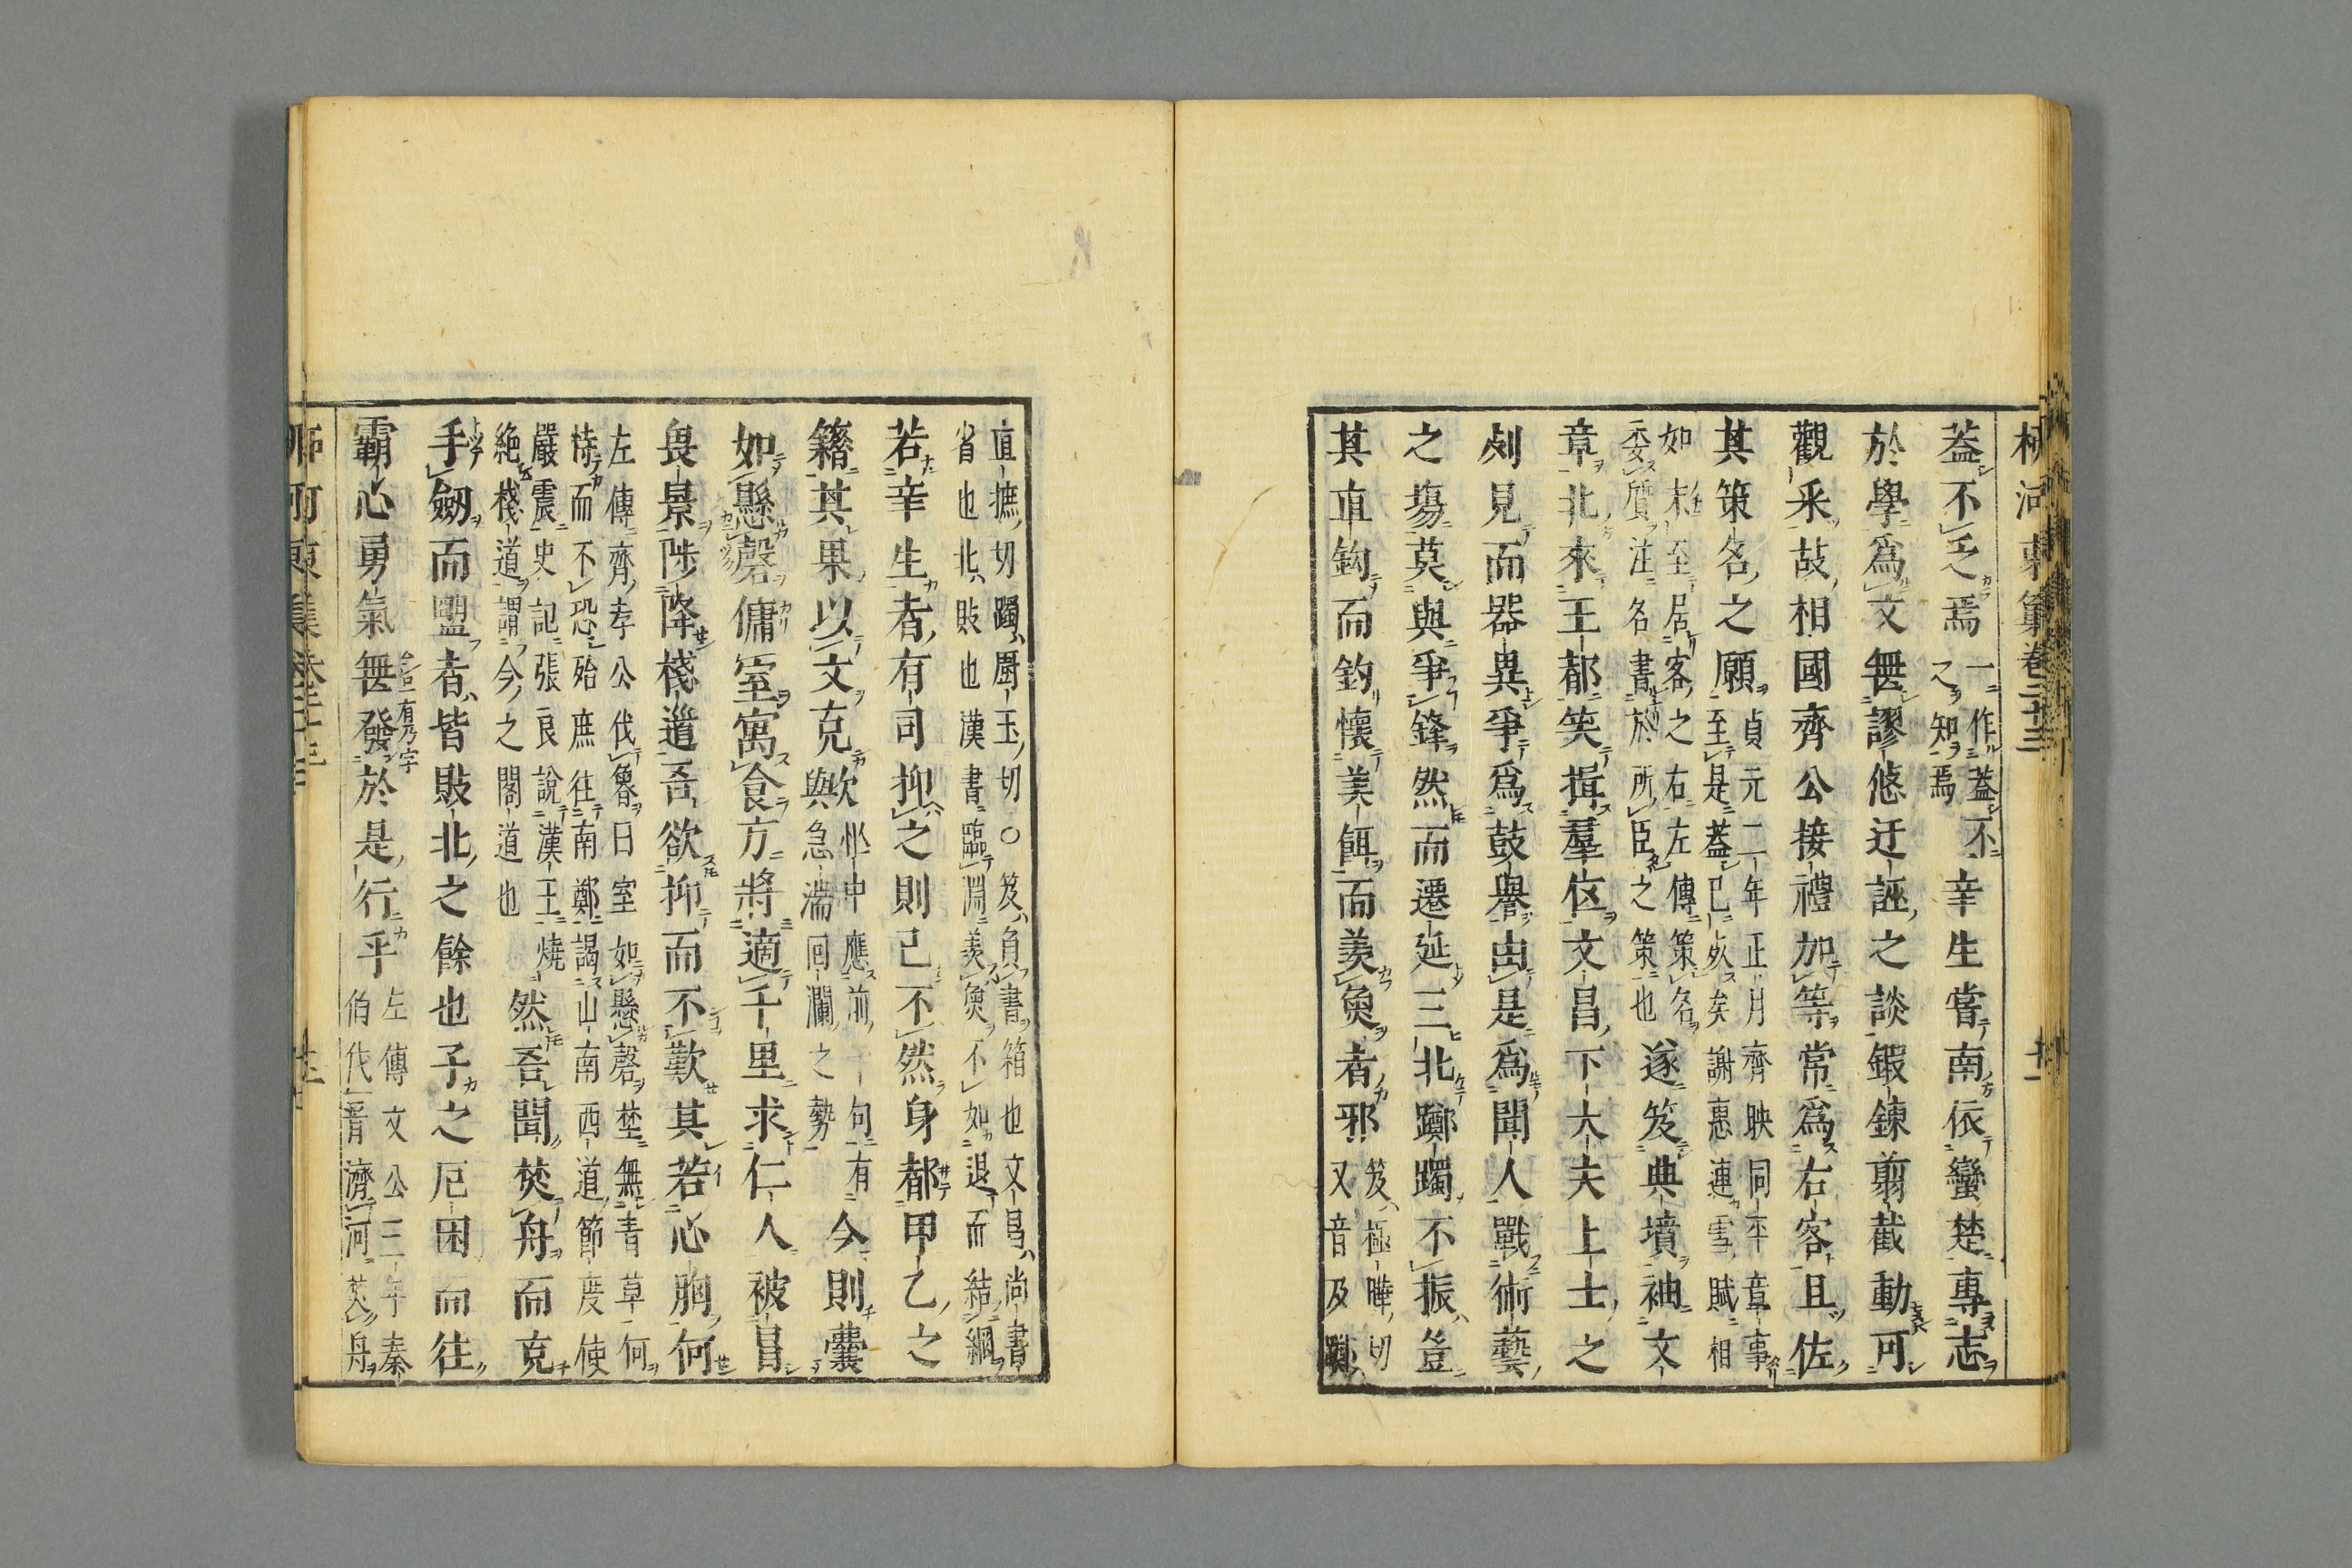 柳河東集卷二十三
蓋不乏焉
一作蓋不
之知焉
辛生嘗南依蠻楚專志
於學爲文無謬悠迂誣之談鍜鍊翦截動可
觀采故相國齊公接禮加等常爲右客且佐
其策名之願
貞元二年正月齊映同平章事
至是蓋已歿矣謝惠連雪賦相
如末至居客之右左傳策名
委質注名書於所臣之策也
遂笈典墳袖文
章北來王都笑揖羣伍文昌下大夫上士之
列見而器異爭爲鼓譽由是爲聞人戰術藝
之場莫與爭鋒然而遷延三北躑躅不振豈
其直鉤而釣懷美餌而羨魚者邪
笈極曄切
又音及躑
直摭切躅厨玉切○笈負書箱也文昌尚書
省也北敗也漢書臨淵羨魚不如退而結網
若辛生者有司抑之則已不然身都甲乙之
籍其果以文克歟
中應前一句有
急湍回瀾之勢
今則囊
如懸磬傭室寓食方將適千里求仁人被冒
畏景陟降棧道吾欲抑而不歎其若心胸何
左傳齊孝公伐魯曰室如懸磬埜無青草何
恃而不恐殆庶往南鄭謁山南西道節度使
嚴震史記張良說漢王燒
絶棧道謂今之閣道也
然吾聞焚舟而克
手劒而盟者皆敗北之餘也子之厄困而往
霸心勇氣無發於是行乎
一有乃字
左傳文公三年秦
伯伐晋濟河焚舟
柳河東集卷二十三